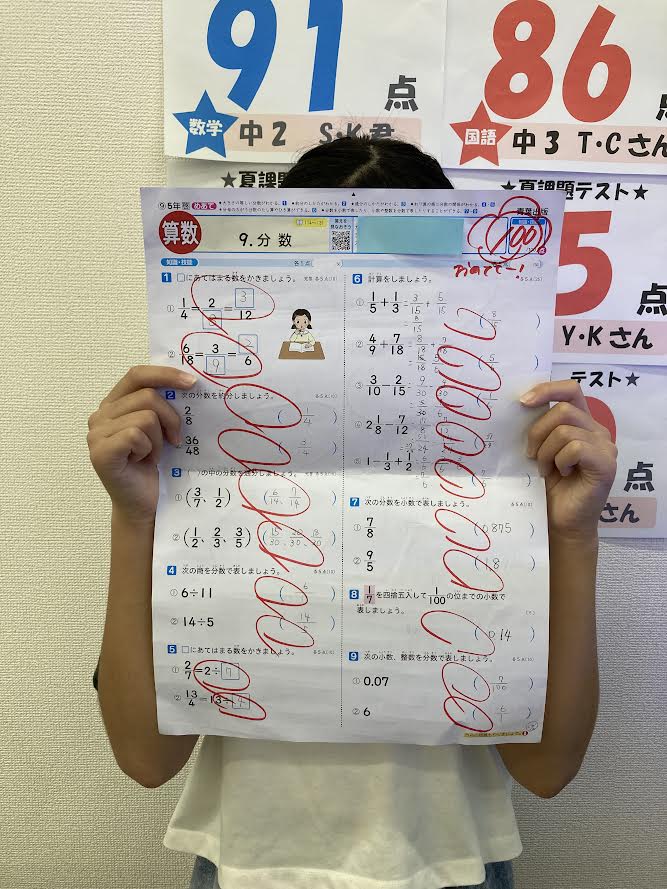 91
点
数学
中2 S・K君
86
点
国語
中3 T・Cさん
★夏課題テスト★
5
Y・Kさん
テスト★
点
さん
⑨5年
めあて
青葉出版
算数
9.分数
100
おめでとー!
知識・技能
1 □にあてはまる数をかきましょう。
① 1/4=2/8=3/12
② 6/18=3/9=2/6
2 次の分数を約分しましょう。
2/8 (1/4)
36/48 (3/4)
3 ( )の中の分数を通分しましょう。
① (3/7、1/2) (6/14、7/14)
② (1/2、2/3、3/5) (15/30、20/30、18/30)
4 次の商を分数で表しましょう。
① 6÷11
② 14÷5
5 □にあてはまる数をかきましょう。
① 2/7=2÷7
② 13/4=13÷4
6 計算をしましょう。
① 1/5+1/3 (8/15)
② 4/9+7/18
③ 3/10−2/15
④ 2 1/8−7/12
⑤ 1−1/3+1/2
7 次の分数を小数で表しましょう。
① 7/8 (0.875)
② 9/5 (1.8)
8 1/7を四捨五入して1/100の位までの小数で
表しましょう。
(0.14)
9 次の小数、整数を分数で表しましょう。
① 0.07 (7/100)
② 6 (6/1)